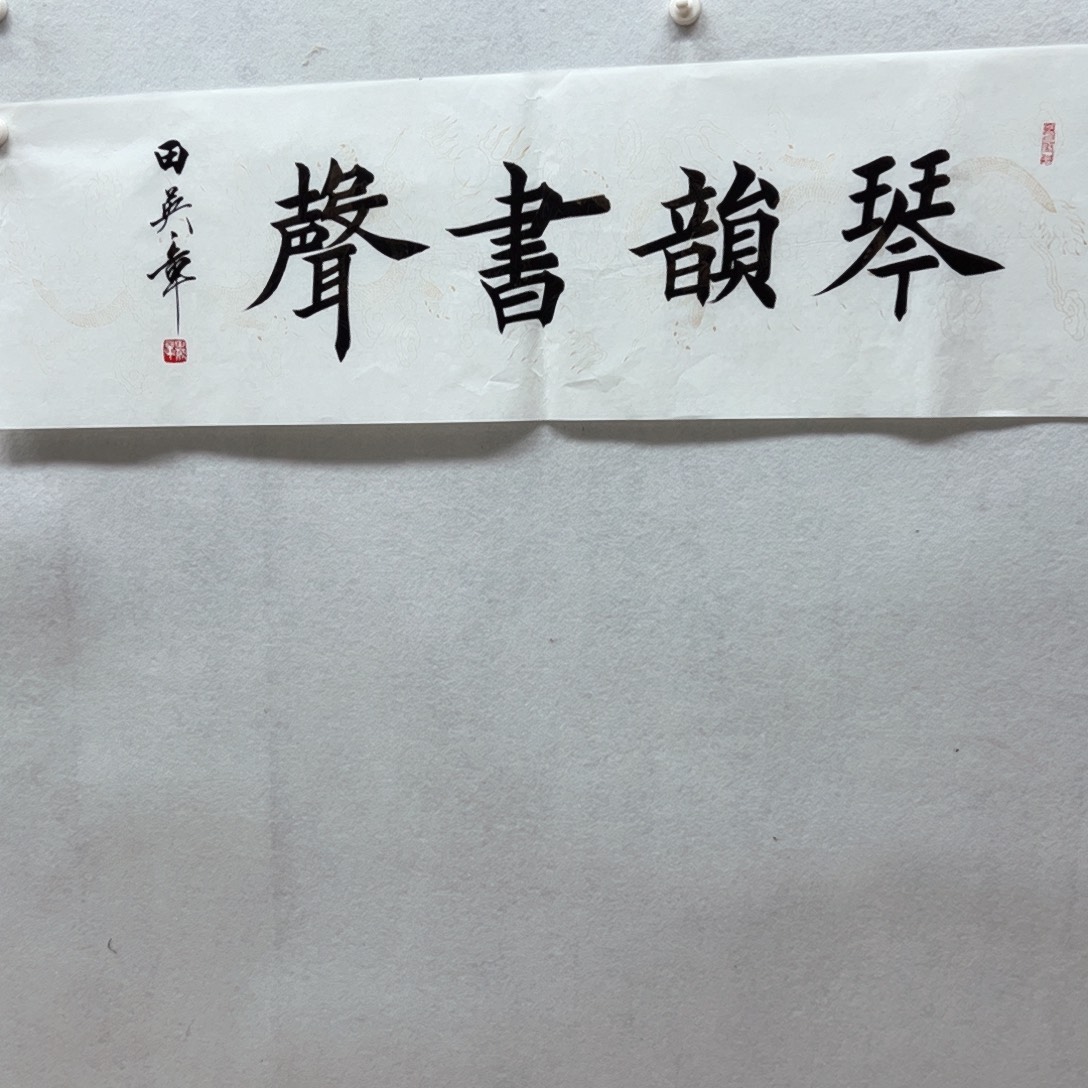 琴韻書聲
田英章